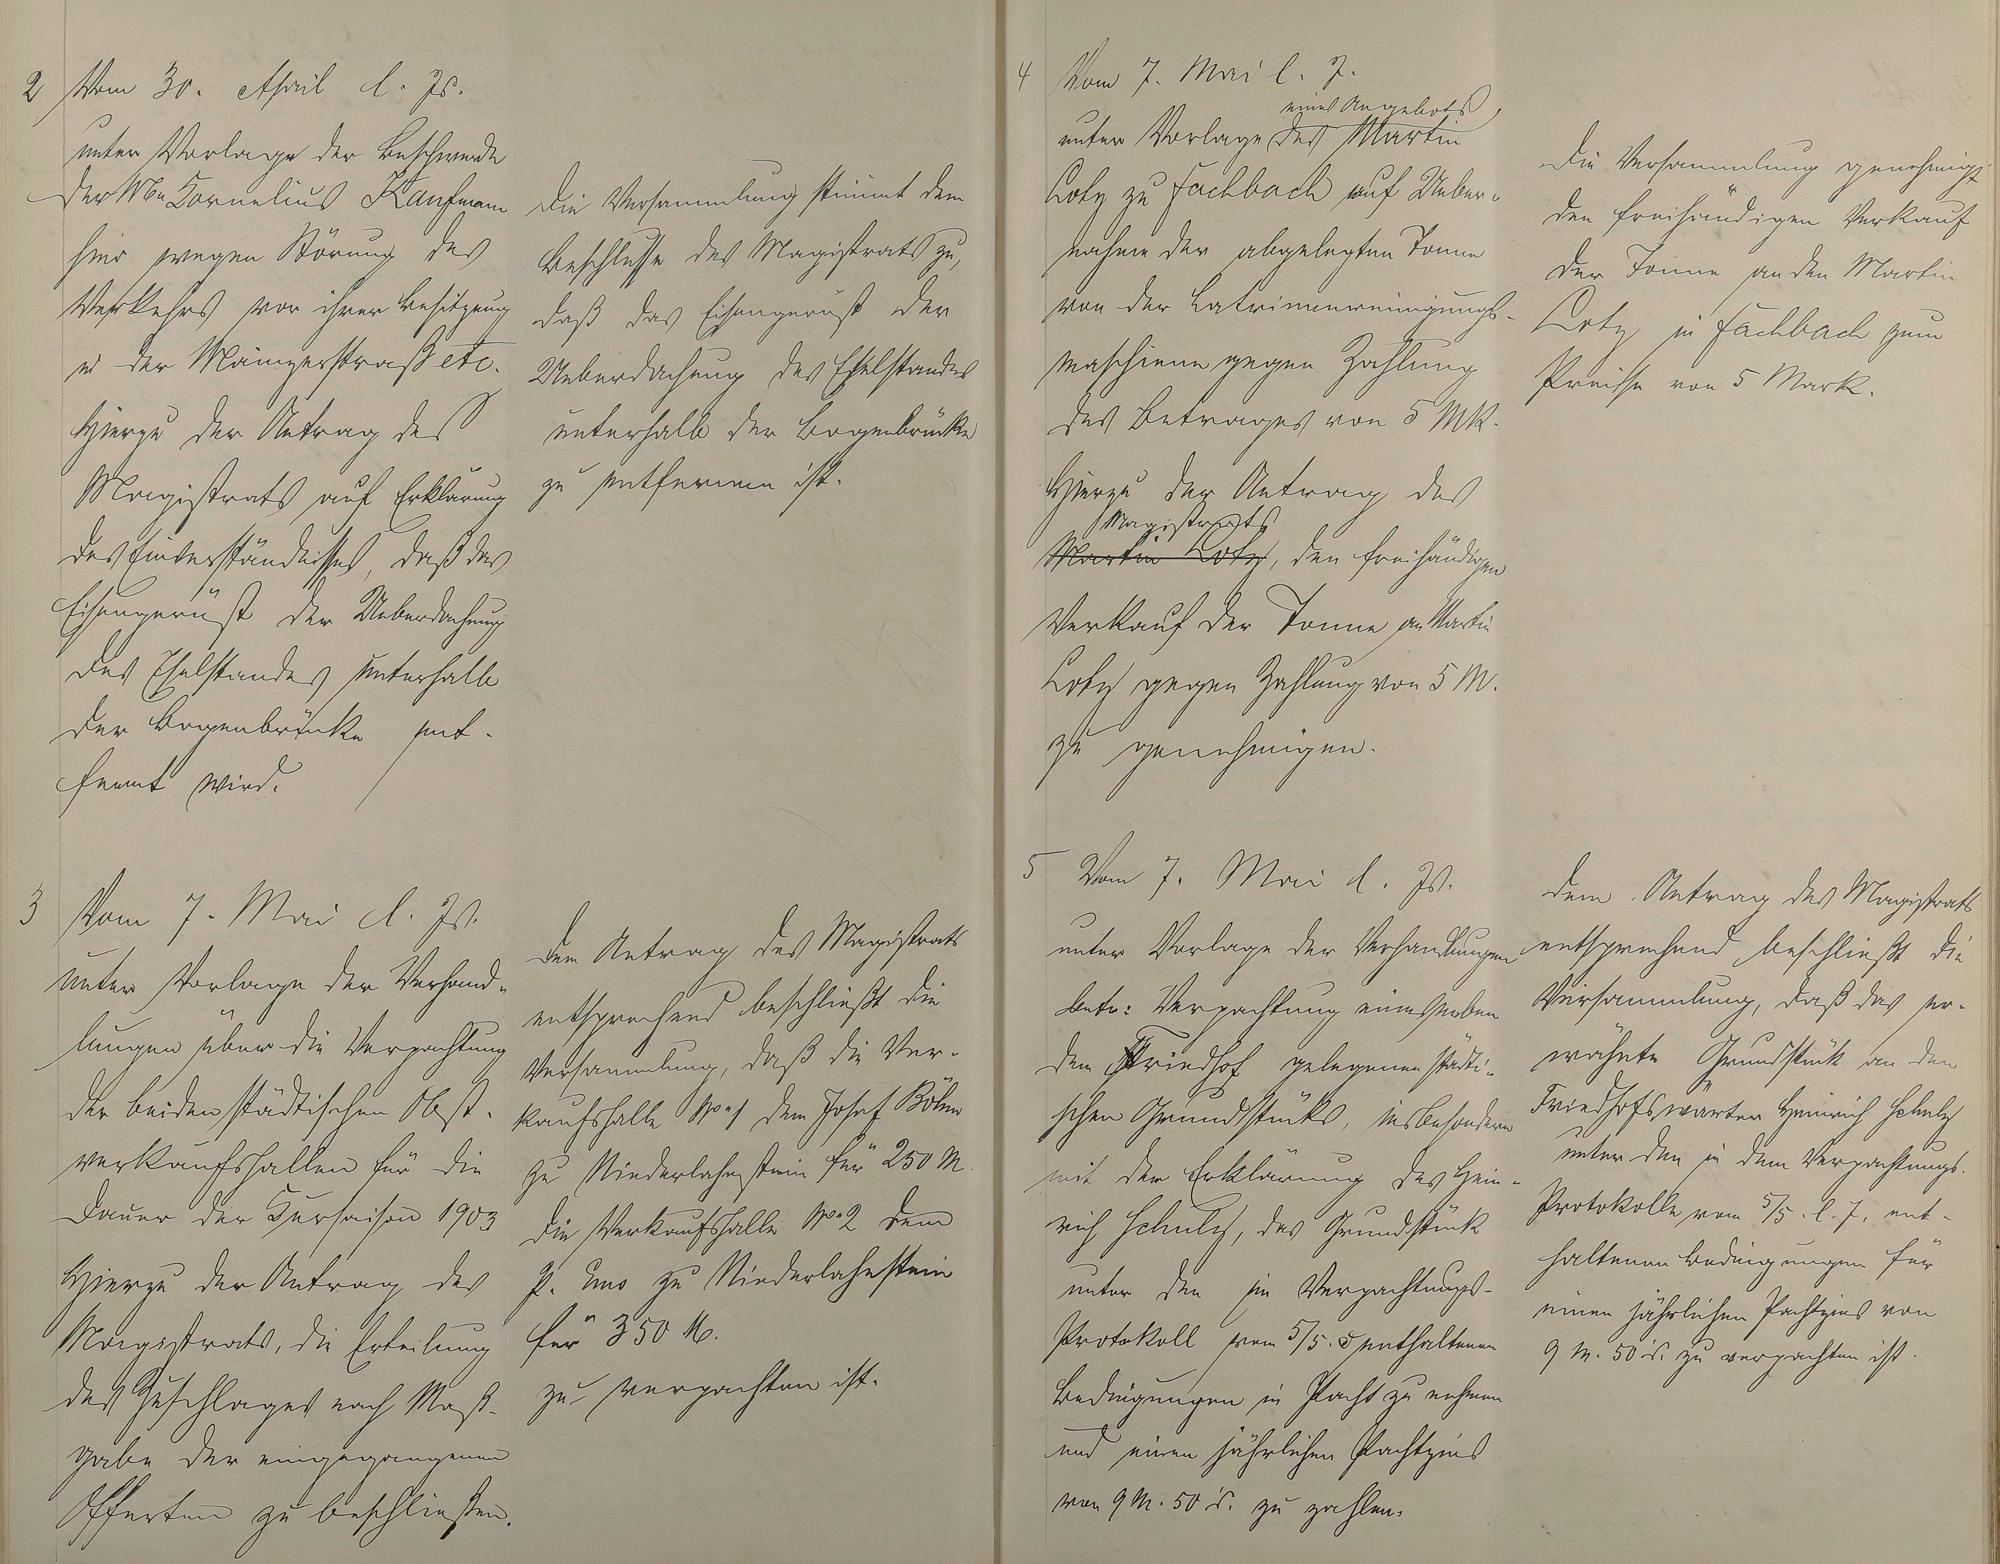 2 Vom 30. April l. Js.
unter Vorlage der Beschwerde
der Ww Cornelius Kaufmann
hier wegen Störung des
Verkehrs vor ihrer Besitzung
in der Mainzerstraße etc.
Hierzu der Antrag des
Magistrats auf Erklärung
des Einverständnisses, daß das
Eisengerüst der Ueberdachung
des Eselstandes unterhalb
der Bogenbrücke ent-
fernt wird.
Die Versammlung stimmt dem
Beschlusse des Magistrats zu,
daß das Eisengerüst der
Ueberdachung des Eselstandes
unterhalb der Bogenbrücke
zu entfernen ist.
3 Vom 7. Mai l. Js.
unter Vorlage der Verhand-
lungen über die Verpachtung
der beiden städtischen Obst-
verkaufshallen für die
Dauer der Kursaison 1903
Hierzu der Antrag des
Magistrats, die Erteilung
des Zuschlages nach Maß-
gabe der eingegangenen
Offerten zu beschließen.
Dem Antrag des Magistrats
entsprechend beschließt die
Versammlung, daß die Ver-
kaufshalle No 1 dem Josef Böhm
zu Niederlahnstein für 250 M.
die Verkaufshalle No 2 dem
P. Ems zu Niederlahnstein
für 350 M.
zu verpachten ist.
4 Vom 7. Mai l. J.
eines Angebots
unter Vorlage des Martin
Lotz zu Fachbach auf Ueber-
nahme der abgelegten Tonne
von der Latrinenreinigungs-
maschiene gegen Zahlung
des Betrages von 5 Mk.
Hierzu der Antrag des
Magistrats
Martin Lotz, den freihändigen
Verkauf der Tonne an Martin
Lotz gegen Zahlung von 5 M.
zu genehmigen.
Die Versammlung genehmigt
den freihändigen Verkauf
der Tonne an den Martin
Lotz in Fachbach zum
Preise von 5 Mark.
5 Vom 7. Mai l. Js.
unter Vorlage der Verhandlungen
betr: Verpachtung eines neben
dem Friedhof gelegenen städti-
schen Grundstücks, insbesondere
mit der Erklärung des Hein-
rich Schulz, das Grundstück
unter den im Verpachtungs-
Protokoll vom 5/5. enthaltenen
Bedingungen in Pacht zu nehmen
und einen jährlichen Pachtzins
von 9 M. 50 d. zu zahlen.
Dem Antrag des Magistrats
entsprechend beschließt die
Versammlung, daß das er-
wähnte Grundstück an den
Friedhofswärter Heinrich Schulz
unter den in dem Verpachtungs-
Protokolle vom 5/5. l. J. ent-
haltenen Bedingungen für
einen jährlichen Pachtzins von
9 M. 50 d. zu verpachten ist.